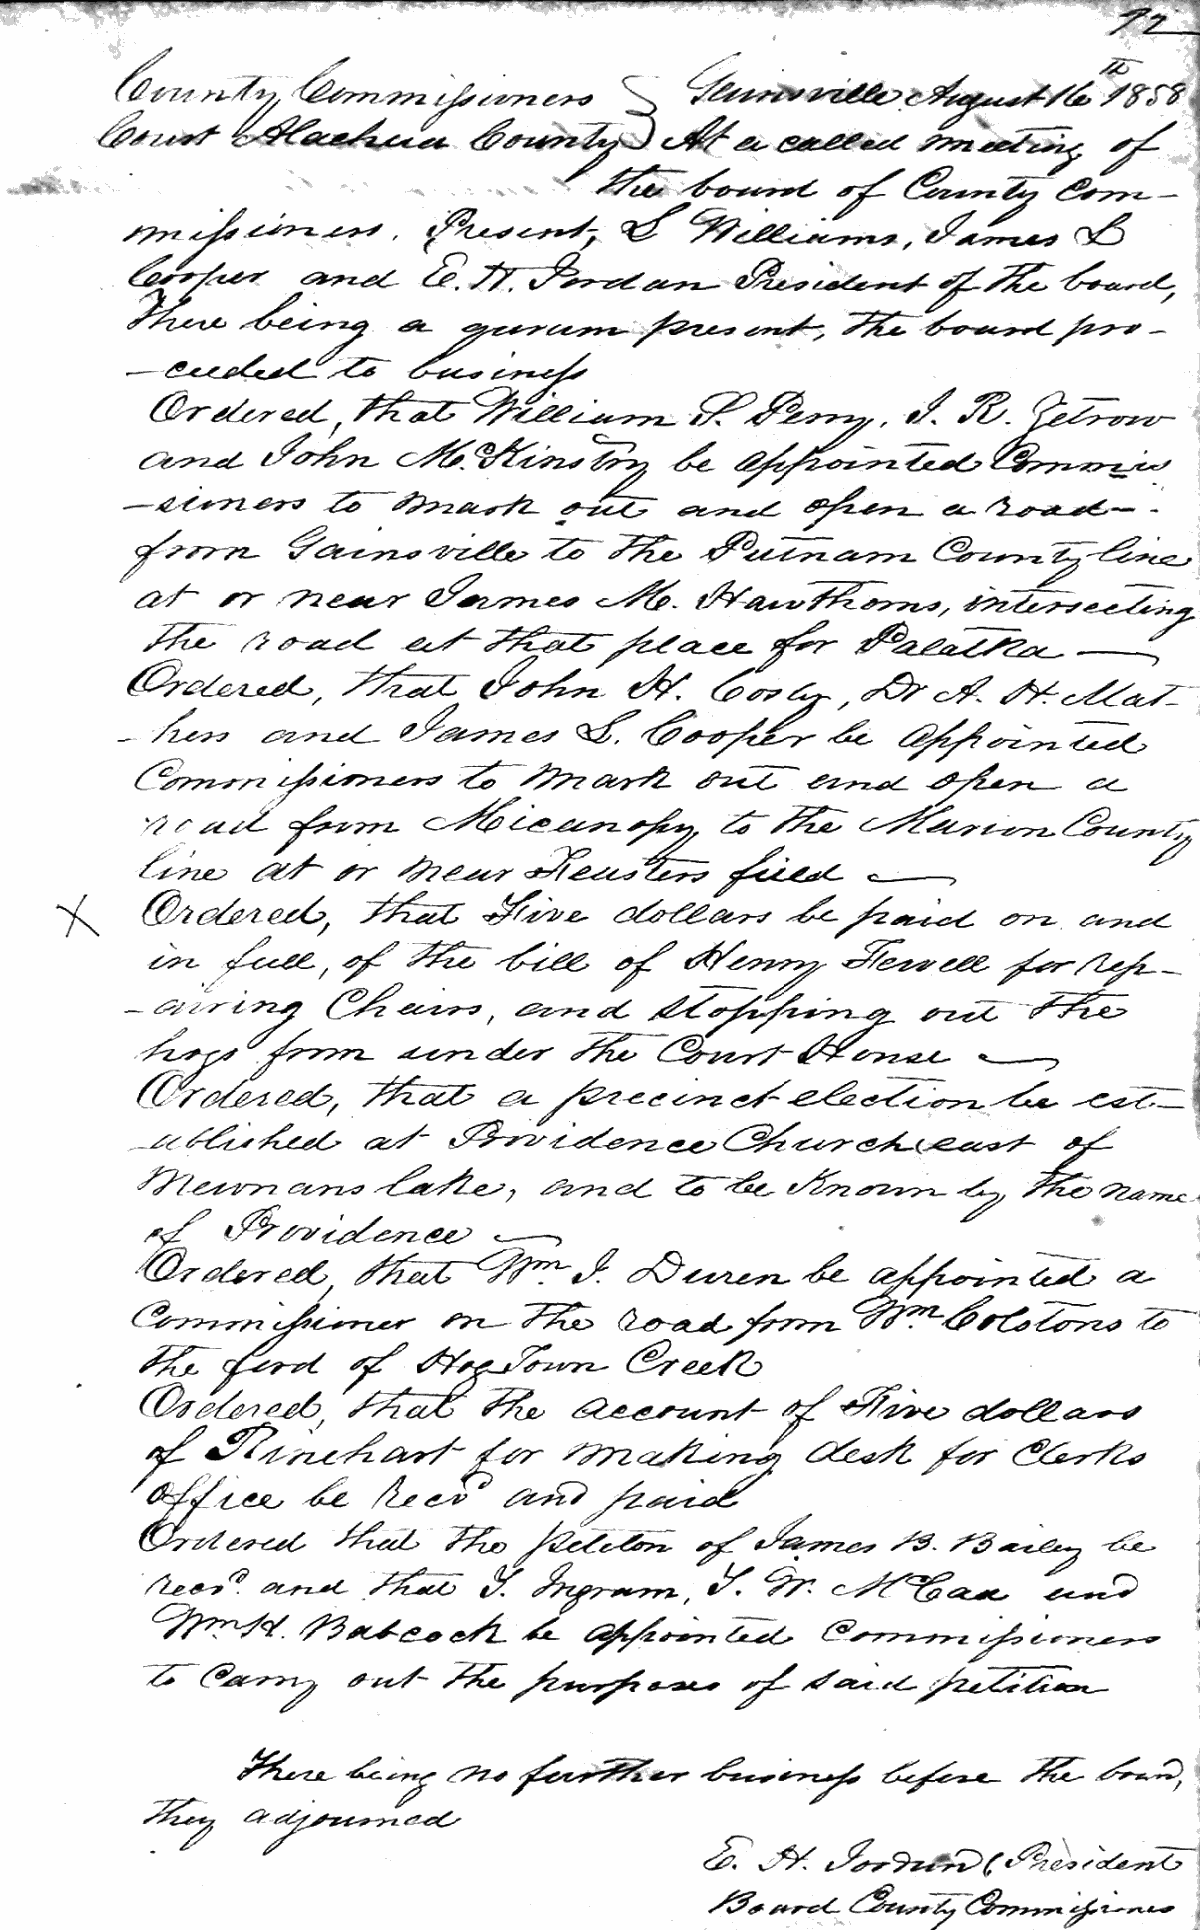 72
County Commissioners } Gainsville August 16th 1858
Court Alachua County } At a called meeting of
the board of County Com-
missioners. Present, L Williams, James L
Cooper and E. H. Jordan President of the board,
There being a quorum present, the board pro-
-ceeded to business
Ordered, that William S. Perry, J. R. Zetrow
and John McKinstry be appointed Commis
-sioners to mark out and open a road -
from Gainsville to the Putnam County line
at or near James M. Hawthorns, intersecting
the road at that place for Palatka —
Ordered, that John H. Cosby, Dr A. H. Mat-
-hers and James L. Cooper be appointed
Commissioners to mark out and open a
road from Micanopy to the Marion County
line at or near Feusters field —
X Ordered, that Five dollars be paid on and
in full, of the bill of Henry Fewell for rep-
-airing Chairs, and stopping out the
hogs from under the Court House —
Ordered, that a precinct election be est-
-ablished at Providence Church east of
Mewnans lake, and to be Known by the name
of Providence —
Ordered, that Wm J. Duren be appointed a
Commissioner on the road from Wm Colstons to
the ford of Hog Town Creek
Ordered, that the account of Five dollars
of Rinehart for making desk for Clerks
office be recd and paid
Ordered that the petiton of James B. Bailey be
recd. and that T. Ingram, T. W. McCaa and
Wm H. Babcock be appointed Commissioners
to carry out the purposes of said petition
There being no further business before the board,
they adjourned
E. H. Jordan (President
Board County Commissioners